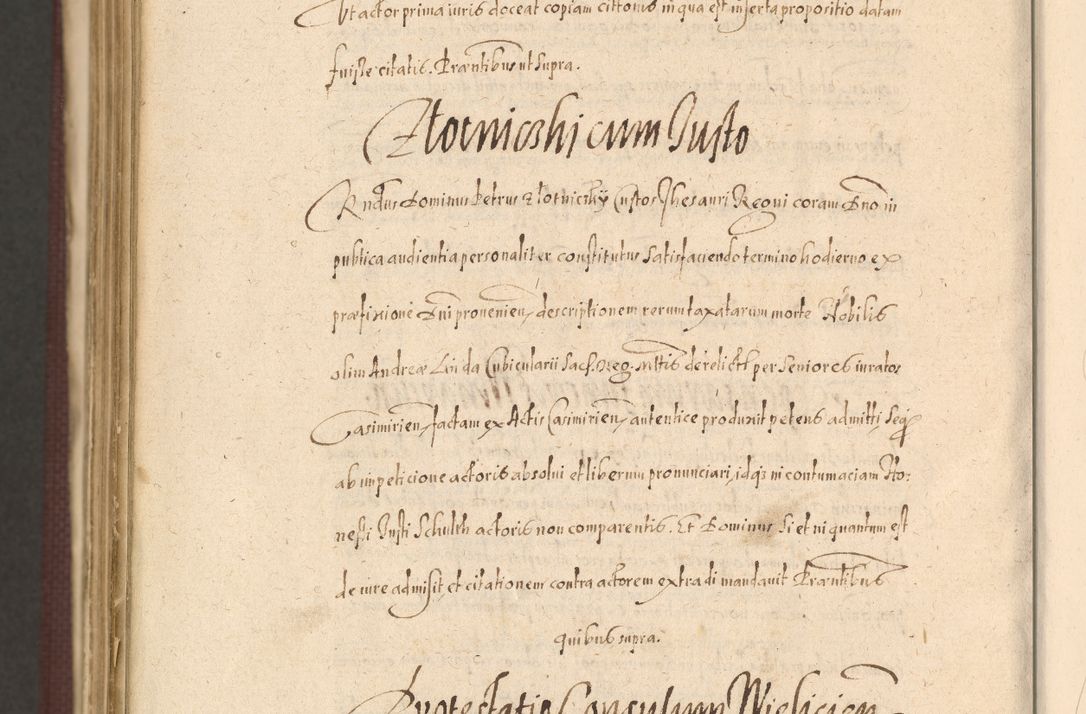 Ut actor prima iuris doceat copiam cittonis in qua est inserta propositio datam
fuisse citatis. Prntibus ut supra.
Zlotniczki cum Justo
Rndus Dominus Petrus Zlotniczky Custos Thesauri Regni coram Dno in
publica audientia personaliter constitutus satisfaciendo termino hodierno ex
præfixione Dni provenien, descriptionem rerum taxatarum morte Nobilis
olim Andreæ Lin da Cubicularii Sac. Reg. Mttis derelict per Seniores iuratos
Casimirien, factam ex Actis Casimirien, autentice produxit petens admitti, Seq
ab impeticione actoris absolvi et liberum pronunciari, idq3 in contumaciam Ho:
nesti Justi Schulth actoris non comparentis. Et Dominus si et in quantum est
de iure admisit, et citationem contra actorem extradi mandavit Præntibus
quibus supra.
Protestatio Consulum Wielicien